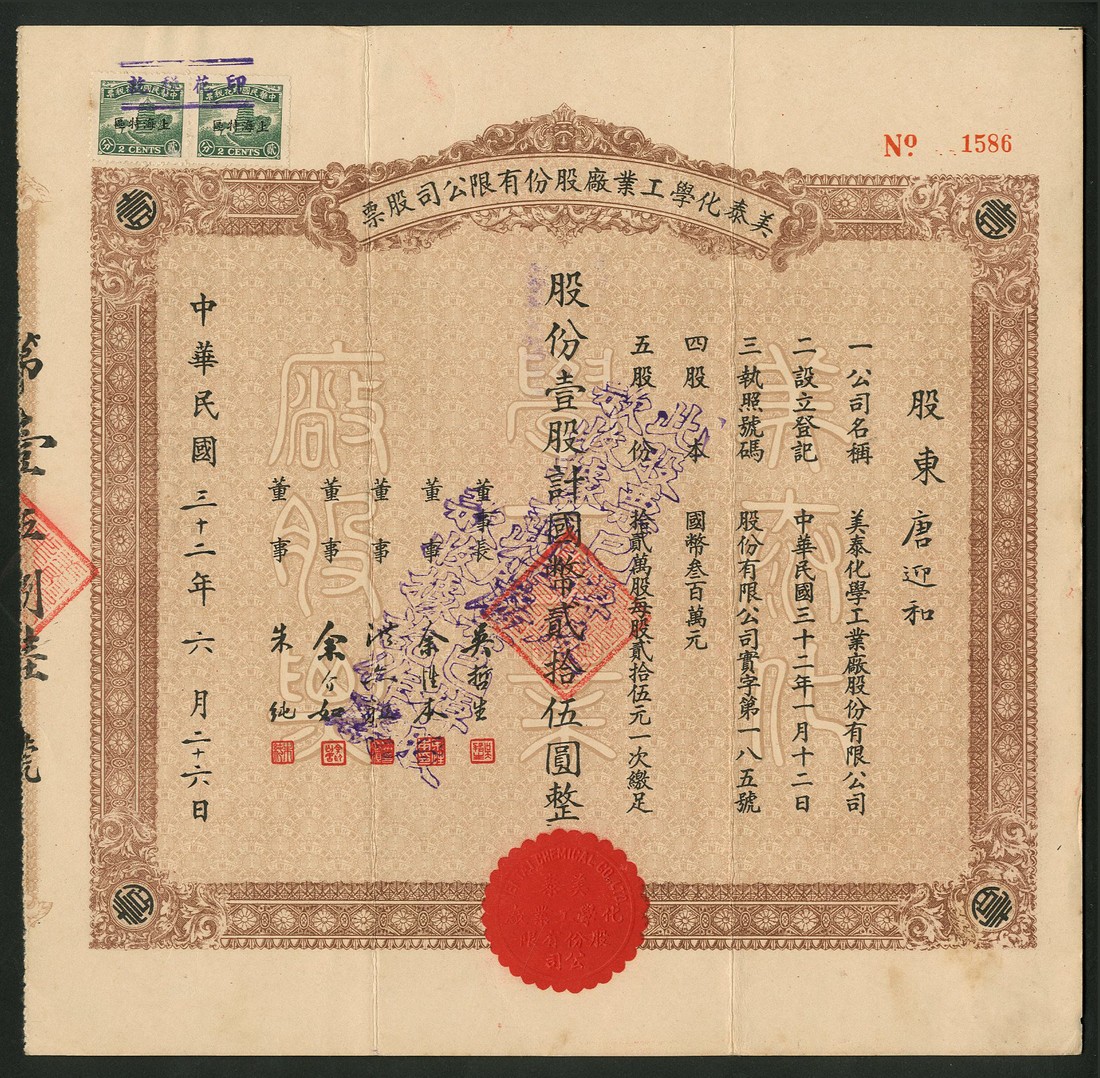 印花稅訖
中華民國印花稅票
上海特區
分 2 CENTS 貳
中華民國印花稅票
上海特區
分 2 CENTS 貳
Nº 1586
美泰化學工業廠股份有限公司股票
股東 唐迎和
一 公司名稱 美泰化學工業廠股份有限公司
二 設立登記 中華民國三十二年一月十二日
三 執照號碼 股份有限公司實字第一八五號
四 股本 國幣叁百萬元
五 股份 拾貳萬股每股貳拾伍元一次繳足
股份壹股計國幣貳拾伍圓整
董事長 吳哲生
董事 余性本
董事
董事 余介如
董事 朱純
中華民國三十二年六月二十六日
第壹伍捌陸號
美泰化學工業廠股票
CHEMICAL CO. LTD.
美泰
化學工業廠
股份有限
公司